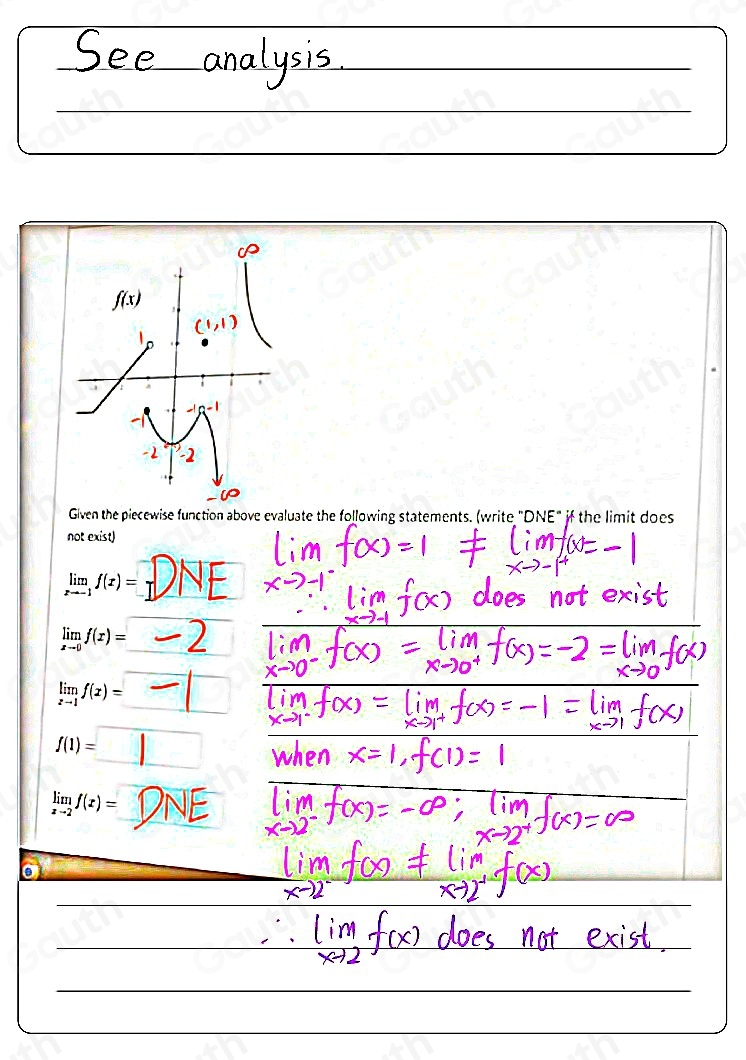 See analysis.
∞
f(x)
(1,1)
1
-1
-1 -1
-2 -2
-∞
Given the piecewise function above evaluate the following statements. (write "DNE" if the limit does
not exist)
lim x→-1 f(x) = DNE
lim x→-1⁻ f(x) = 1 ≠ lim x→-1⁺ f(x) = -1
∴ lim x→-1 f(x) does not exist
lim x→0 f(x) = -2
lim x→0⁻ f(x) = lim x→0⁺ f(x) = -2 = lim x→0 f(x)
lim x→1 f(x) = -1
lim x→1⁻ f(x) = lim x→1⁺ f(x) = -1 = lim x→1 f(x)
f(1) = 1
when x=1, f(1) = 1
lim x→2 f(x) = DNE
lim x→2⁻ f(x) = -∞; lim x→2⁺ f(x) = ∞
lim x→2⁻ f(x) ≠ lim x→2⁺ f(x)
∴ lim x→2 f(x) does not exist.
Gauth